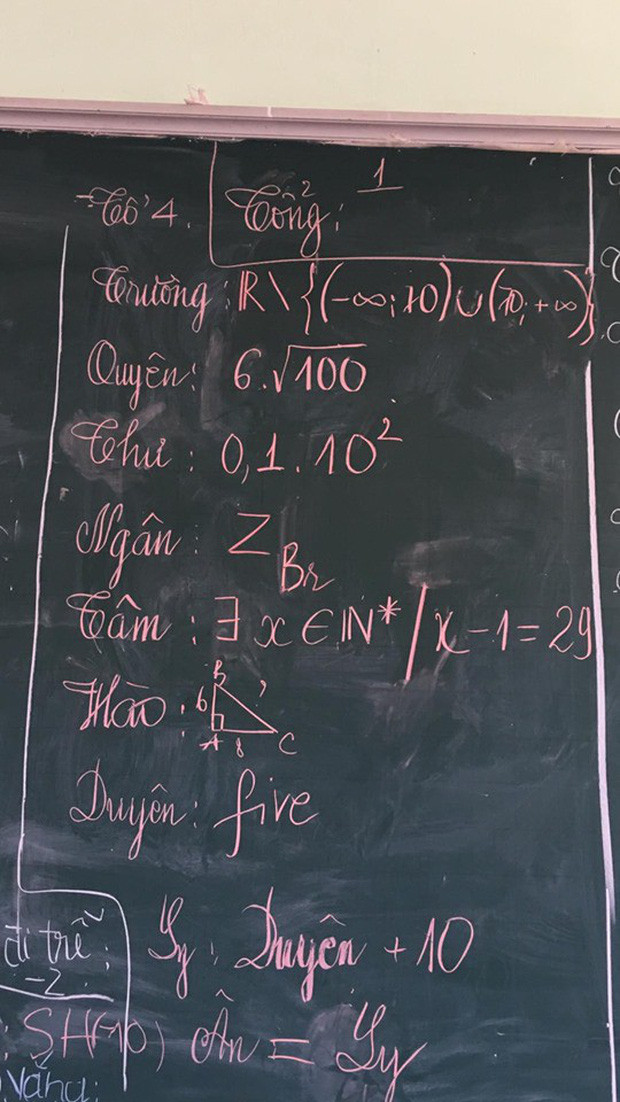 Tổ 4.
Tổng²:
1
Trường: ℝ\{(-∞; 10)∪(10; +∞)}
Quyên: 6.√100
Thư: 0,1.10²
Ngân: Z_Br
Tâm: ∃ x ∈ ℕ* / x - 1 = 29
Hào:
B
6
?
A 8 C
Duyên: five
đi trễ:
-2
Ly: Duyên + 10
: SH(-10) Ân = Ly